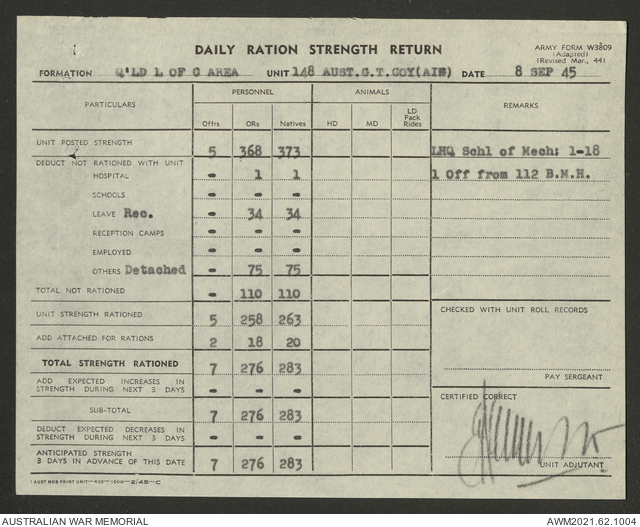 DAILY RATION STRENGTH RETURN
ARMY FORM W3809
(Adapted)
(Revised Mar., 44)
FORMATION Q'LD L OF C AREA UNIT 148 AUST.G.T.COY(AIF) DATE 8 SEP 45
PARTICULARS PERSONNEL ANIMALS REMARKS
Offrs ORs Natives HD MD LD Pack Rides
UNIT POSTED STRENGTH 5 368 373 LHQ Schl of Mech: 1-18
DEDUCT NOT RATIONED WITH UNIT
HOSPITAL - 1 1 1 Off from 112 B.M.H.
SCHOOLS - - -
LEAVE Rec. - 34 34
RECEPTION CAMPS - - -
EMPLOYED - - -
OTHERS Detached - 75 75
TOTAL NOT RATIONED - 110 110
UNIT STRENGTH RATIONED 5 258 263 CHECKED WITH UNIT ROLL RECORDS
ADD ATTACHED FOR RATIONS 2 18 20
TOTAL STRENGTH RATIONED 7 276 283
PAY SERGEANT
ADD EXPECTED INCREASES IN
STRENGTH DURING NEXT 3 DAYS - - -
CERTIFIED CORRECT
SUB-TOTAL 7 276 283
DEDUCT EXPECTED DECREASES IN
STRENGTH DURING NEXT 3 DAYS - - -
ANTICIPATED STRENGTH
3 DAYS IN ADVANCE OF THIS DATE 7 276 283
UNIT ADJUTANT
AUST MOB PRINT UNIT—430—100M—2/45—C
AUSTRALIAN WAR MEMORIAL AWM2021.62.1004